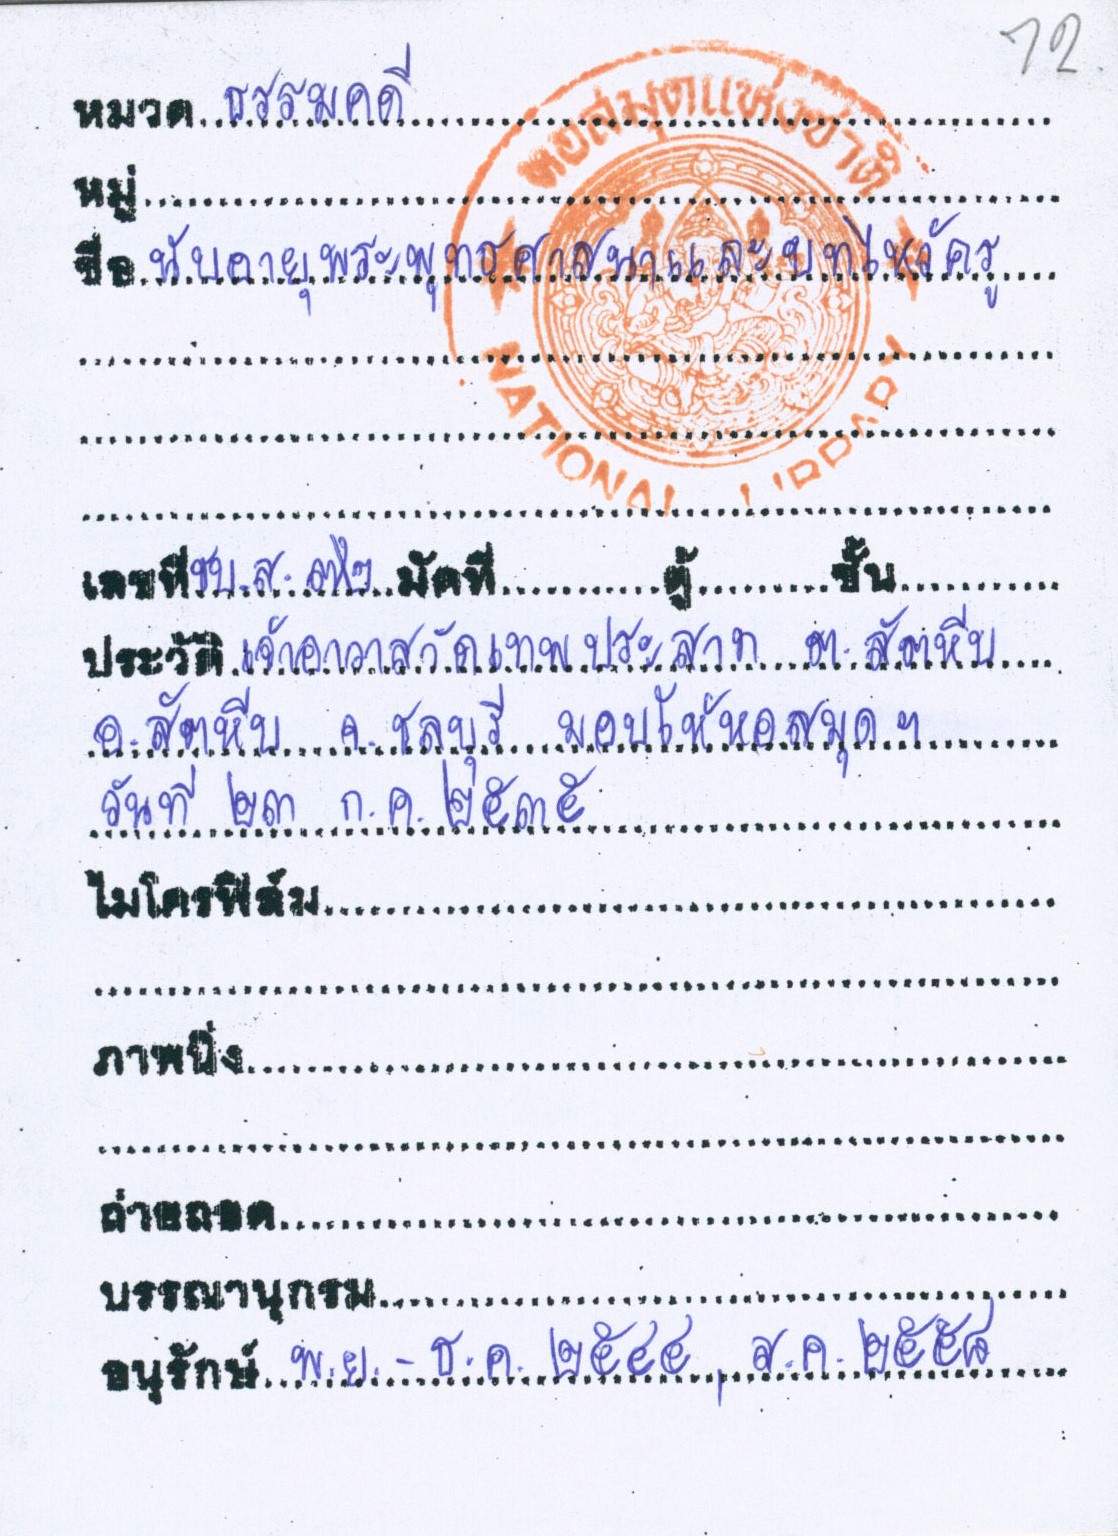 72.
หอสมุดแห่งชาติ
NATIONAL LIBRARY
หมวด ธรรมคดี
หมู่
ชื่อ นับอายุพระพุทธศาสนาและบทไหว้ครู
เลขที่ ชบ.ส. ๗๒ มัดที่ ตู้ ชั้น
ประวัติ เจ้าอาวาสวัดเทพประสาท ต.สัตหีบ
อ.สัตหีบ จ.ชลบุรี มอบให้หอสมุดฯ
วันที่ ๒๓ ก.ค. ๒๕๓๕
ไมโครฟิล์ม
ภาพนิ่ง
ถ่ายถอด
บรรณานุกรม
อนุรักษ์ พ.ย. - ธ.ค. ๒๕๔๔, ส.ค. ๒๕๕๘